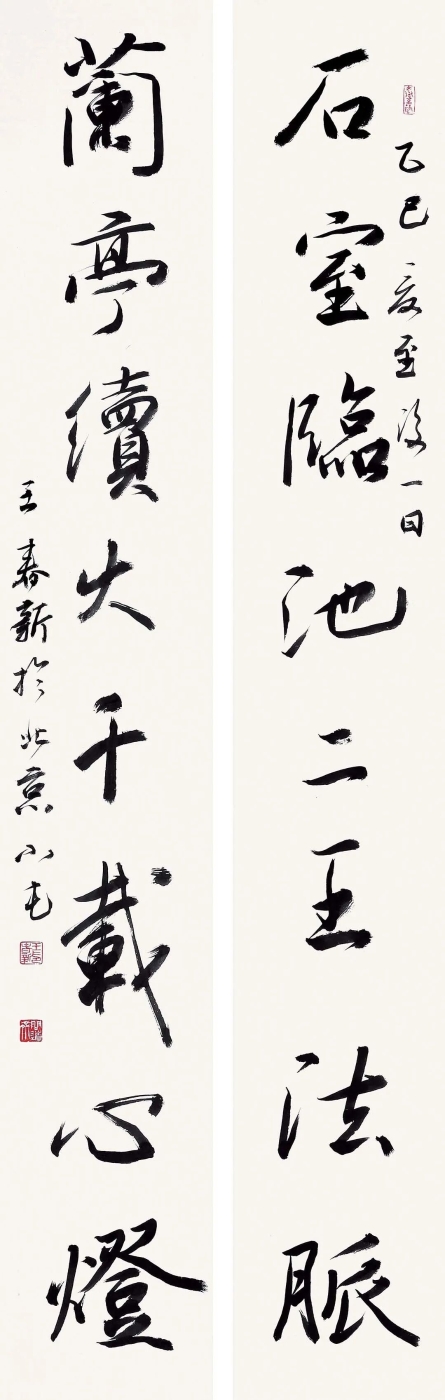 乙巳夏至後一日
石室臨池二王法脈
蘭亭續火千載心燈
王春新於北京